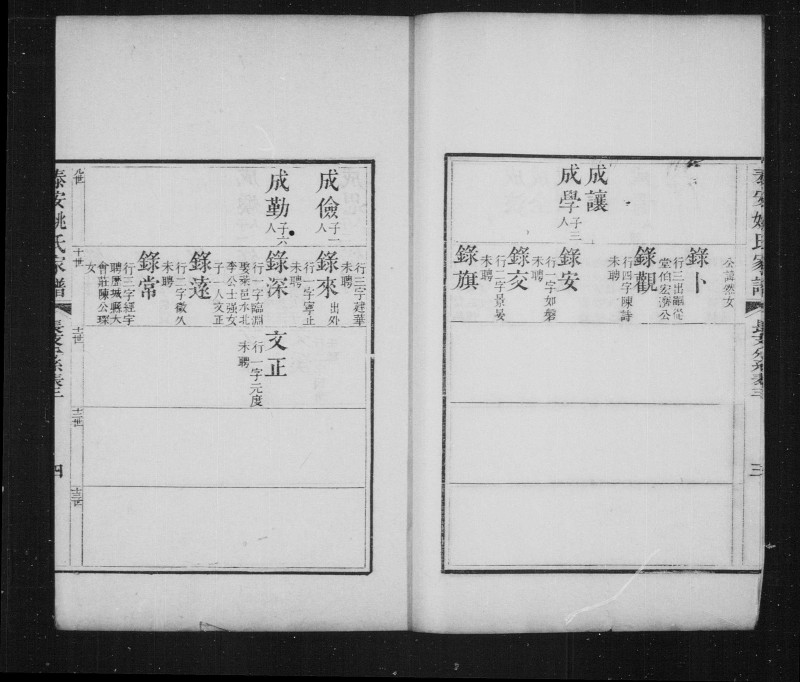 泰安姚氏家譜
長支分系表三
三
公諱然女
錄卜
行三出嗣從
堂伯宏濟公
錄觀
行四字陳詩
未聘
成讓
成學
子三
人
錄安
行一字如磐
未聘
錄亥
行二字景晏
未聘
錄旂
行三字建華
未聘
成儉
子一
人
錄來
出外
行一字寧止
未聘
成勤
子六
人
錄深
行一字臨淵
娶萊邑水北
李公士强女
子一人文正
文正
行一字元度
未聘
錄遠
行二字徽久
未聘
錄常
行三字經宇
聘歷城縣大
會莊陳公琛
女
九世
十世
十一世
十二世
十三世
泰安姚氏家譜
長支分系表三
四